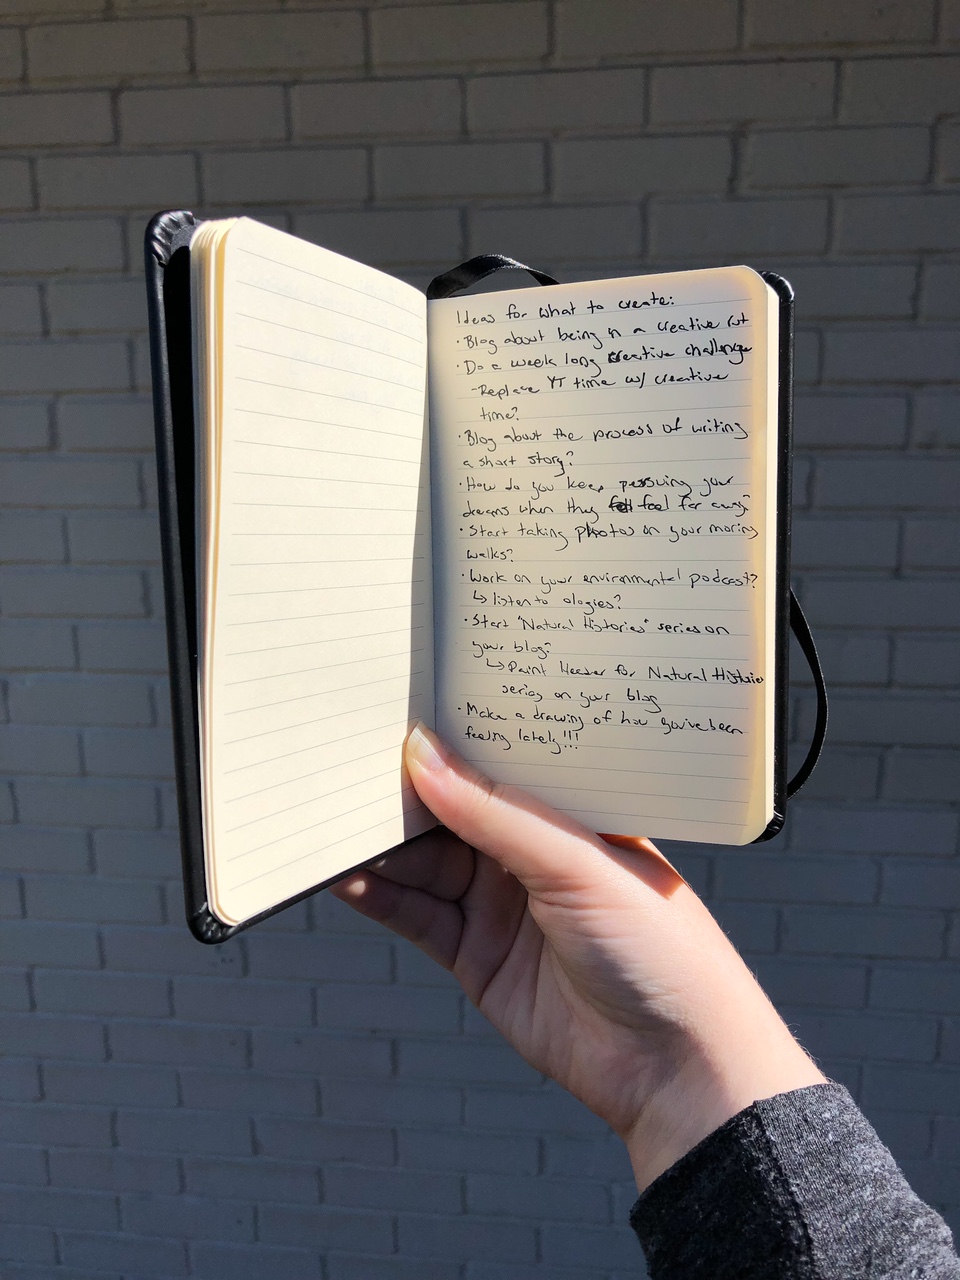 Ideas for what to create:
· Blog about being in a creative rut
· Do a week long creative challenge
-Replace YT time w/ creative
time?
· Blog about the process of writing
a short story?
· How do you keep persuing your
dreams when they feel far away?
· Start taking photos on your morning
walks?
· Work on your environmental podcast?
↳ listen to ologies?
· Start "Natural Histories" series on
your blog?
↳ Paint Header for Natural Histories
series on your blog
· Make a drawing of how you've been
feeling lately!!!